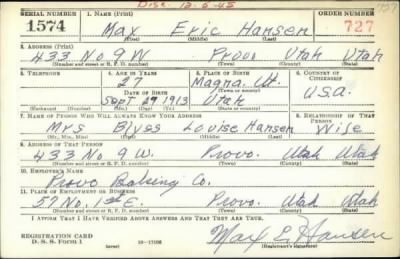 Disc. 12-5-45
SERIAL NUMBER 1. NAME (Print) ORDER NUMBER
1574 Max Eric Hansen 727
(First) (Middle) (Last)
2. ADDRESS (Print)
433 No 9 W Provo Utah Utah
(Number and street or R. F. D. number) (Town) (County) (State)
3. TELEPHONE 4. AGE IN YEARS 5. PLACE OF BIRTH 6. COUNTRY OF CITIZENSHIP
27 Magna, Ut.
DATE OF BIRTH (Town or county)
Sept 29 1913 Utah U.S.A.
(Exchange) (Number) (Mo.) (Day) (Yr.) (State or country)
7. NAME OF PERSON WHO WILL ALWAYS KNOW YOUR ADDRESS 8. RELATIONSHIP OF THAT PERSON
Mrs Louise Hansen Wife
(Mr., Mrs., Miss) (First) (Middle) (Last)
9. ADDRESS OF THAT PERSON
433 No 9 W. Provo. Utah Utah
(Number and street or R. F. D. number) (Town) (County) (State)
10. EMPLOYER'S NAME
Provo Baking Co.
11. PLACE OF EMPLOYMENT OR BUSINESS
57 No. 1st E. Provo. Utah Utah
(Number and street or R. F. D. number) (Town) (County) (State)
I AFFIRM THAT I HAVE VERIFIED ABOVE ANSWERS AND THAT THEY ARE TRUE.
REGISTRATION CARD
D. S. S. Form 1 16-17105 Max E Hansen
(Registrant's signature)